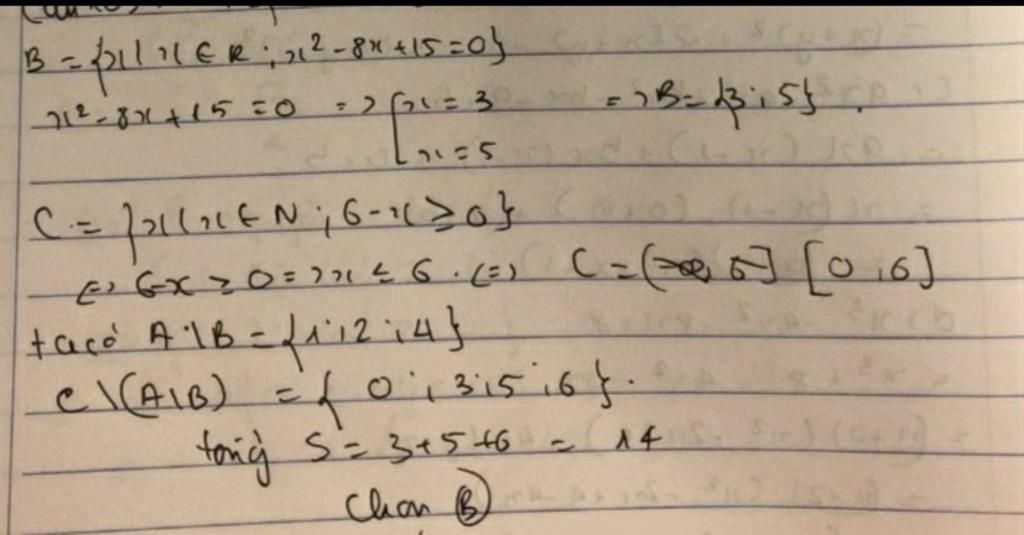 B = {x | x ∈ R ; x² - 8x + 15 = 0}
x² - 8x + 15 = 0 => [x = 3 => B = {3 ; 5}.
x = 5
C = {x | x ∈ N ; 6 - x ≥ 0}
<=> 6-x ≥ 0 => x ≤ 6. <=> C = [0 ; 6]
ta có A \ B = {1 ; 2 ; 4}
C \ (A\B) = { 0 ; 3 ; 5 ; 6 }.
tổng S = 3 + 5 + 6 = 14
Chọn B